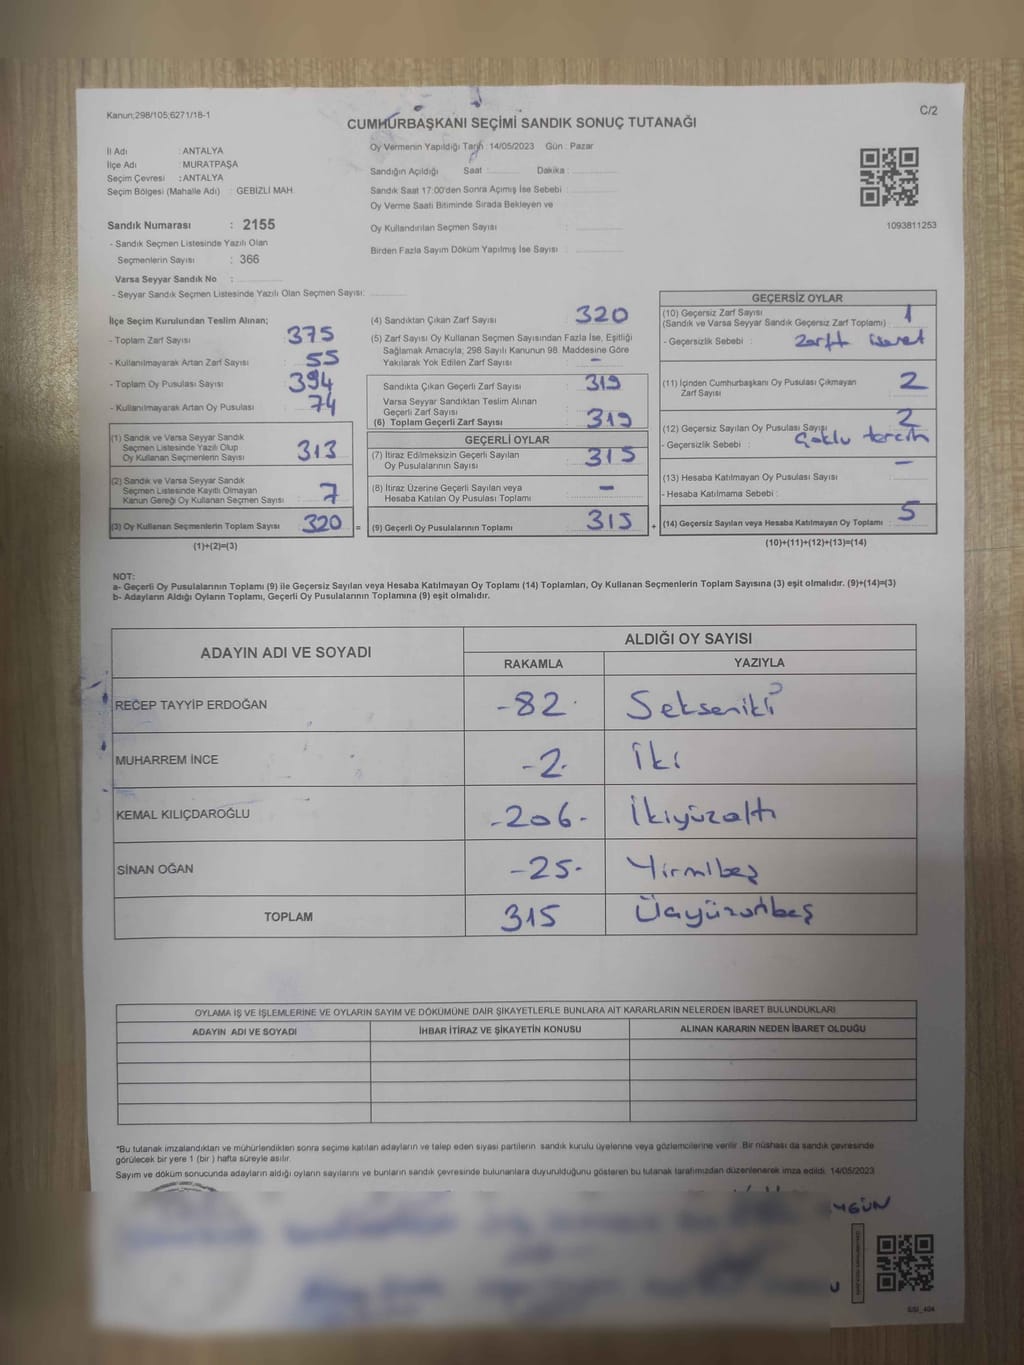 Kanun;298/105;6271/18-1
C/2
CUMHURBAŞKANI SEÇİMİ SANDIK SONUÇ TUTANAĞI
İl Adı : ANTALYA
İlçe Adı : MURATPAŞA
Seçim Çevresi : ANTALYA
Seçim Bölgesi (Mahalle Adı) : GEBİZLİ MAH.
Sandık Numarası : 2155
- Sandık Seçmen Listesinde Yazılı Olan
Seçmenlerin Sayısı : 366
Varsa Seyyar Sandık No :
- Seyyar Sandık Seçmen Listesinde Yazılı Olan Seçmen Sayısı:
Oy Vermenin Yapıldığı Tarih : 14/05/2023 Gün : Pazar
Sandığın Açıldığı Saat : Dakika :
Sandık Saat 17:00'den Sonra Açımış İse Sebebi :
Oy Verme Saati Bitiminde Sırada Bekleyen ve
Oy Kullandırılan Seçmen Sayısı :
Birden Fazla Sayım Döküm Yapılmış İse Sayısı :
1093811253
İlçe Seçim Kurulundan Teslim Alınan;
- Toplam Zarf Sayısı : 375
- Kullanılmayarak Artan Zarf Sayısı : 55
- Toplam Oy Pusulası Sayısı : 394
- Kullanılmayarak Artan Oy Pusulası : 74
(1) Sandık ve Varsa Seyyar Sandık
Seçmen Listesinde Yazılı Olup
Oy Kullanan Seçmenlerin Sayısı : 313
(2) Sandık ve Varsa Seyyar Sandık
Seçmen Listesinde Kayıtlı Olmayan
Kanun Gereği Oy Kullanan Seçmen Sayısı : 7
(3) Oy Kullanan Seçmenlerin Toplam Sayısı : 320 =
(1)+(2)=(3)
(4) Sandıktan Çıkan Zarf Sayısı : 320
(5) Zarf Sayısı Oy Kullanan Seçmen Sayısından Fazla İse, Eşitliği
Sağlamak Amacıyla, 298 Sayılı Kanunun 98. Maddesine Göre
Yakılarak Yok Edilen Zarf Sayısı : -
Sandıkta Çıkan Geçerli Zarf Sayısı : 319
Varsa Seyyar Sandıktan Teslim Alınan
Geçerli Zarf Sayısı :
(6) Toplam Geçerli Zarf Sayısı : 319
GEÇERLİ OYLAR
(7) İtiraz Edilmeksizin Geçerli Sayılan
Oy Pusulalarının Sayısı : 315
(8) İtiraz Üzerine Geçerli Sayılan veya
Hesaba Katılan Oy Pusulası Toplamı : -
(9) Geçerli Oy Pusulalarının Toplamı : 315 +
GEÇERSİZ OYLAR
(10) Geçersiz Zarf Sayısı
(Sandık ve Varsa Seyyar Sandık Geçersiz Zarf Toplamı) : 1
- Geçersizlik Sebebi : Zarfta işaret
(11) İçinden Cumhurbaşkanı Oy Pusulası Çıkmayan
Zarf Sayısı : 2
(12) Geçersiz Sayılan Oy Pusulası Sayısı : 2
- Geçersizlik Sebebi : Çoklu tercih
(13) Hesaba Katılmayan Oy Pusulası Sayısı : -
- Hesaba Katılmama Sebebi :
(14) Geçersiz Sayılan veya Hesaba Katılmayan Oy Toplamı : 5
(10)+(11)+(12)+(13)=(14)
NOT:
a- Geçerli Oy Pusulalarının Toplamı (9) ile Geçersiz Sayılan veya Hesaba Katılmayan Oy Toplamı (14) Toplamları, Oy Kullanan Seçmenlerin Toplam Sayısına (3) eşit olmalıdır. (9)+(14)=(3)
b- Adayların Aldığı Oyların Toplamı, Geçerli Oy Pusulalarının Toplamına (9) eşit olmalıdır.
ADAYIN ADI VE SOYADI
ALDIĞI OY SAYISI
RAKAMLA YAZIYLA
RECEP TAYYİP ERDOĞAN -82- Seksen iki
MUHARREM İNCE -2- İki
KEMAL KILIÇDAROĞLU -206- İkiyüzaltı
SİNAN OĞAN -25- Yirmibeş
TOPLAM 315 Üçyüzonbeş
OYLAMA İŞ VE İŞLEMLERİNE VE OYLARIN SAYIM VE DÖKÜMÜNE DAİR ŞİKAYETLERLE BUNLARA AİT KARARLARIN NELERDEN İBARET BULUNDUKLARI
ADAYIN ADI VE SOYADI İHBAR İTİRAZ VE ŞİKAYETİN KONUSU ALINAN KARARIN NEDEN İBARET OLDUĞU
*Bu tutanak imzalandıktan ve mühürlendikten sonra seçime katılan adayların ve talep eden siyasi partilerin sandık kurulu üyelerine veya gözlemcilerine verilir. Bir nüshası da sandık çevresinde
görülecek bir yere 1 (bir) hafta süreyle asılır.
Sayım ve döküm sonucunda adayların aldığı oyların sayılarını ve bunların sandık çevresinde bulunanlara duyurulduğunu gösteren bu tutanak tarafımızdan düzenlenerek imza edildi. 14/05/2023